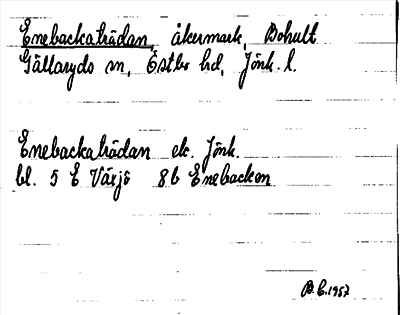 Enebackaträdan, åkermark, Bohult
Gällaryds sn, Östbo hd, Jönk. l.
Enebackaträdan ek. Jönk.
bl. 5 E Växjö 8b Enebacken
B.E. 1957